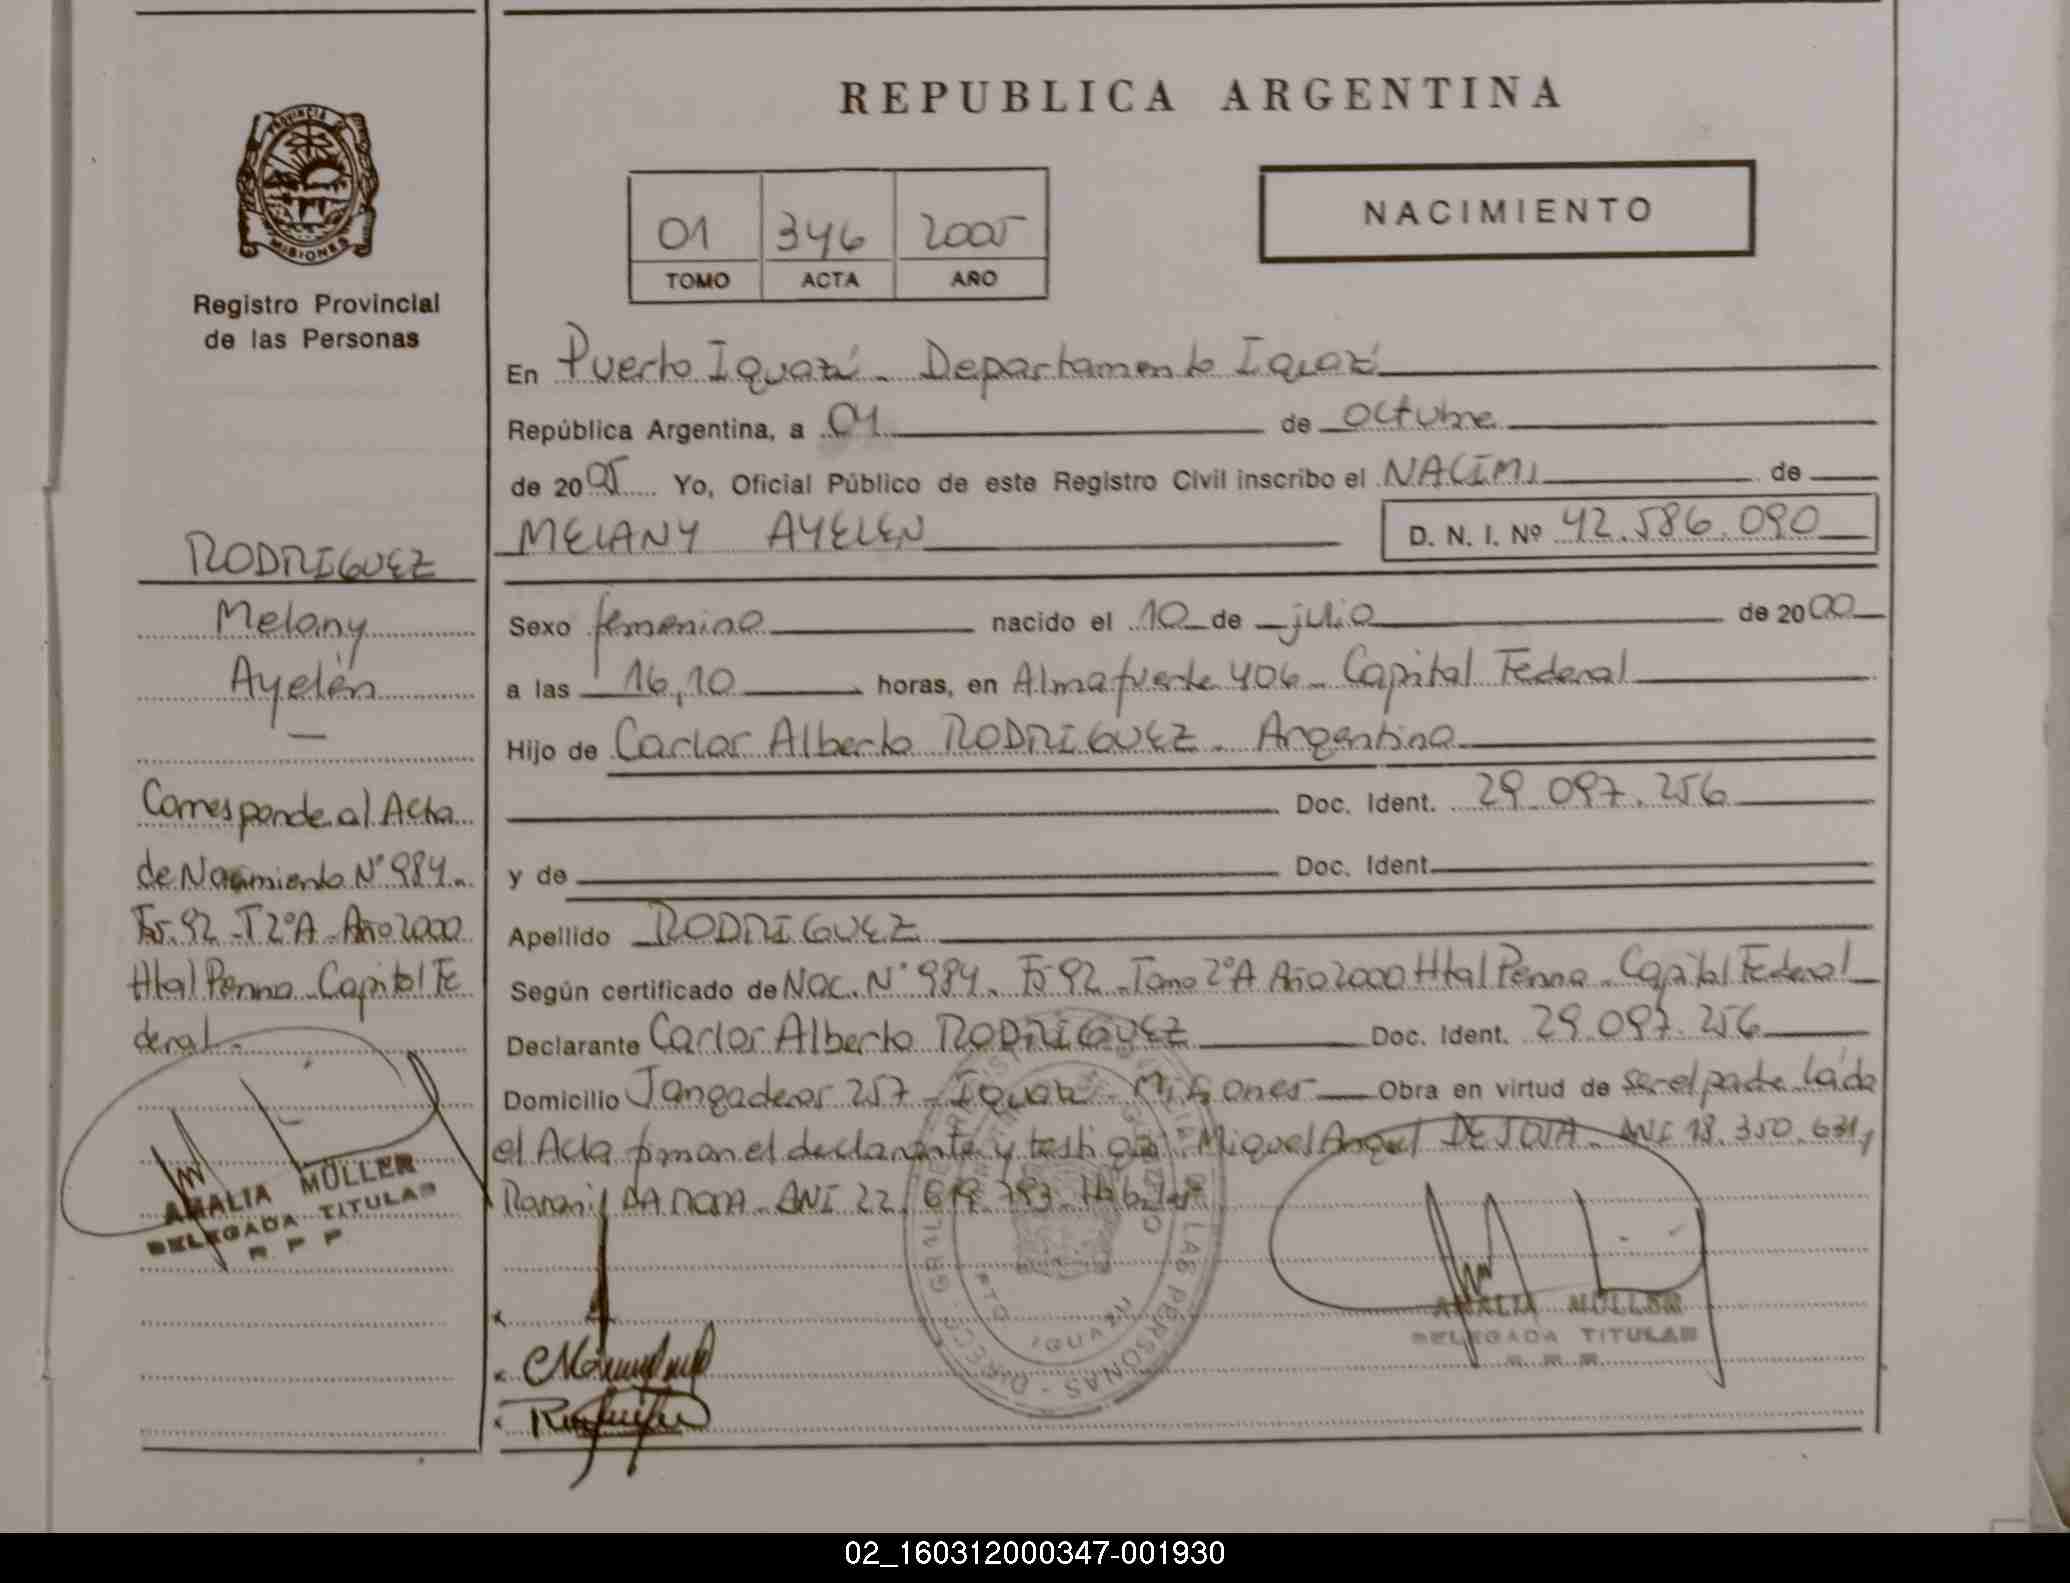 REPUBLICA ARGENTINA
PROVINCIA DE
MISIONES
Registro Provincial
de las Personas
01 346 2005
TOMO ACTA AÑO
NACIMIENTO
En Puerto Iguazú - Departamento Iguazú
República Argentina, a 01 de octubre
de 2005 Yo, Oficial Público de este Registro Civil inscribo el NACIMI de
MELANY AYELEN D. N. I. Nº 42.586.090
Sexo femenino nacido el 10 de julio de 2000
a las 16,10 horas, en Almafuerte 406 - Capital Federal
Hijo de Carlos Alberto RODRIGUEZ - Argentino
Doc. Ident. 29.097.256
y de Doc. Ident.
Apellido RODRIGUEZ
Según certificado de Nac. Nº 984 - Fº 92 - Tomo 2ºA Año 2000 Htal Penna - Capital Federal
Declarante Carlos Alberto RODRIGUEZ Doc. Ident. 29.097.256
Domicilio Jangaderos 257 - Iguazú - Misiones Obra en virtud de ser el padre Leída
el Acta firman el declarante y testigos: Miguel Angel DNI 18.350.631,
DA ROSA - DNI 22.619.793
RODRIGUEZ
Melany
Ayelén
—
Corresponde al Acta
de Nacimiento Nº 984 -
Fº 92 - T 2ºA - Año 2000
Htal Penna - Capital Fe
deral -
AMALIA MÜLLER
DELEGADA TITULAR
R P P
AMALIA MÜLLER
DELEGADA TITULAR
02_160312000347-001930